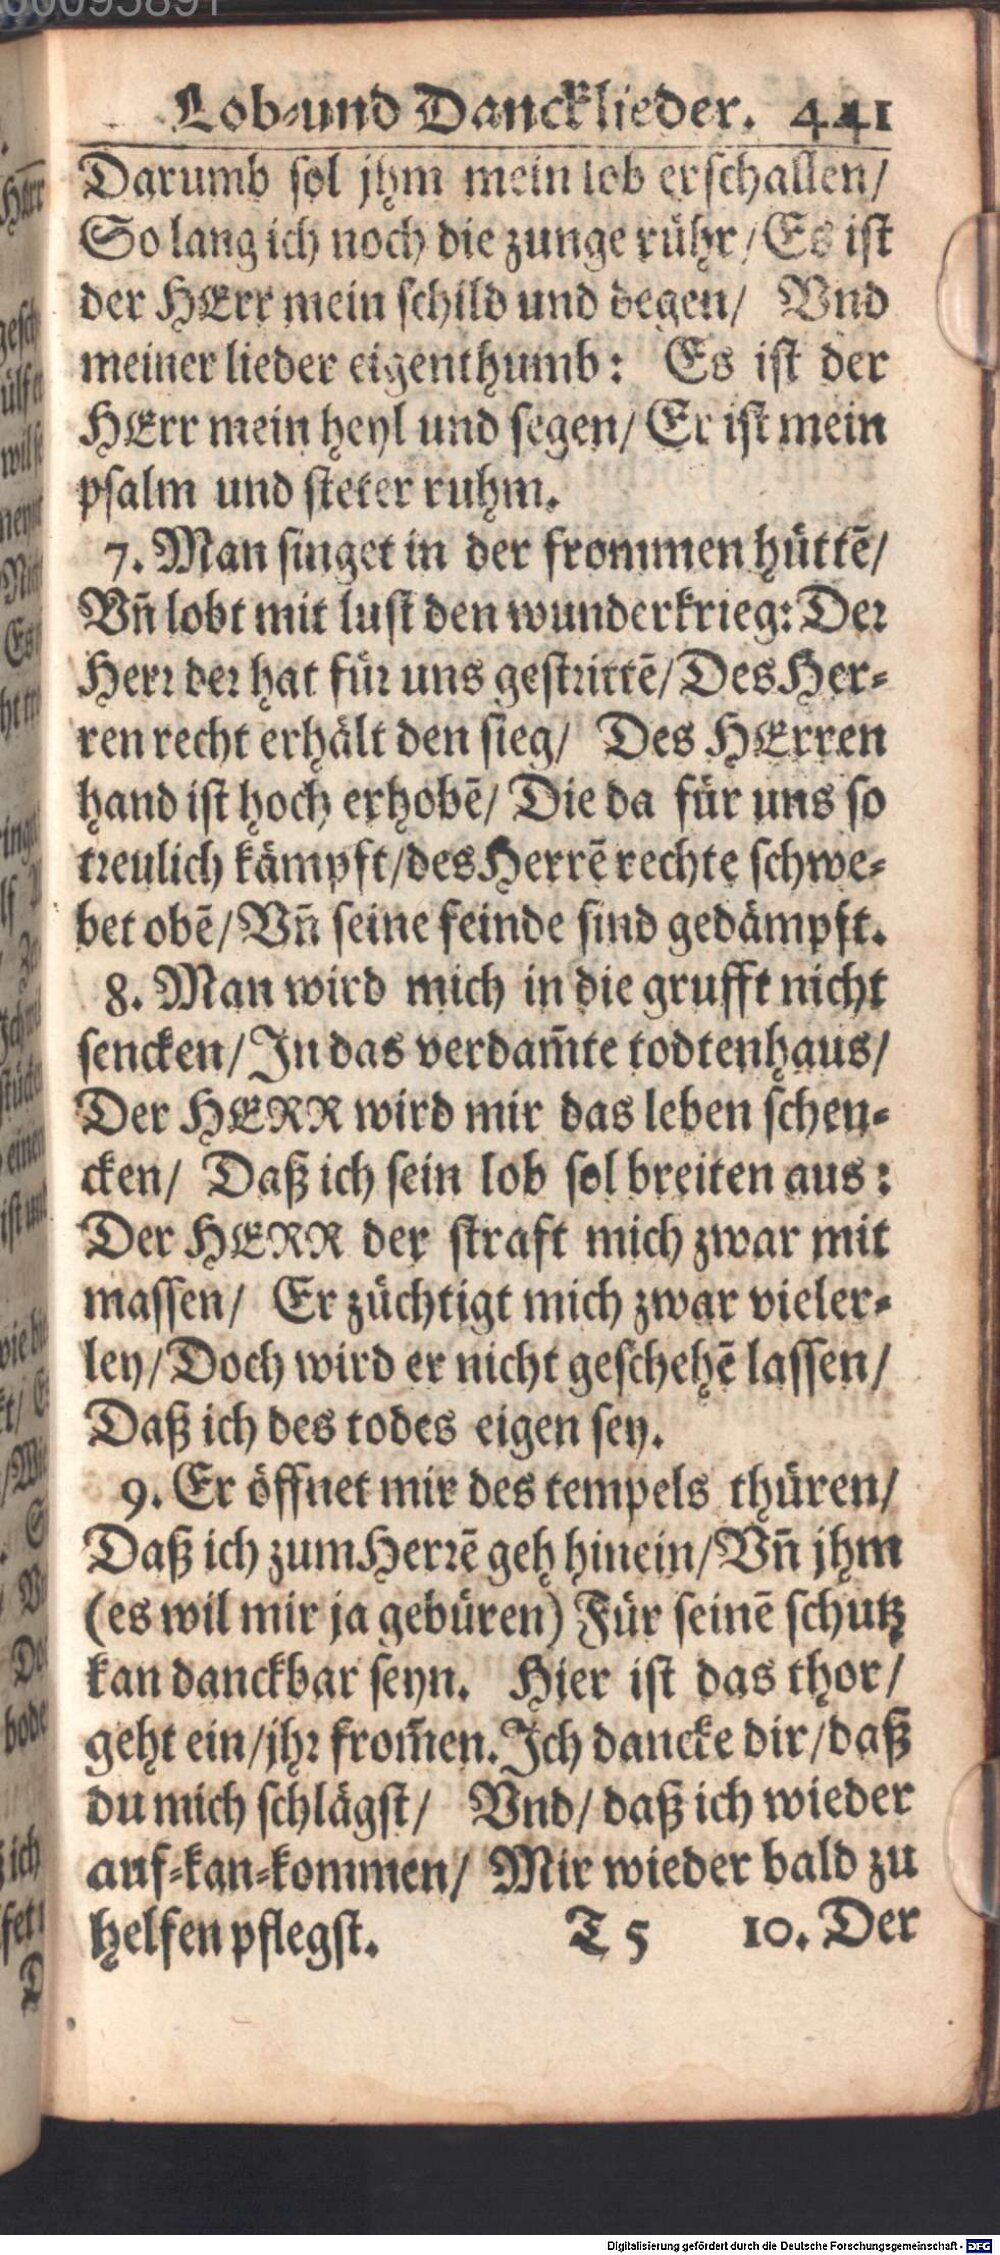 Lob-und Dancklieder. 441
Darumb sol jhm mein lob erschallen/
So lang ich noch die zunge rühr/ Es ist
der HErr mein schild und degen/ Vnd
meiner lieder eigenthumb: Es ist der
HErr mein heyl und segen/ Er ist mein
psalm und steter ruhm.
7. Man singet in der frommen hüttē/
Vn̄ lobt mit lust den wunderkrieg: Der
Herr der hat für uns gestrittē/ Des Her-
ren recht erhält den sieg/ Des HErren
hand ist hoch erhobē/ Die da für uns so
treulich kämpft/ des Herrē rechte schwe-
bet obē/ Vn̄ seine feinde sind gedämpft.
8. Man wird mich in die grufft nicht
sencken/ In das verdam̄te todtenhaus/
Der HERR wird mir das leben schen-
cken/ Daß ich sein lob sol breiten aus:
Der HERR der straft mich zwar mit
massen/ Er züchtigt mich zwar vieler-
ley/ Doch wird er nicht geschehē lassen/
Daß ich des todes eigen sey.
9. Er öffnet mir des tempels thüren/
Daß ich zum Herrē geh hinein/ Vn̄ jhm
(es wil mir ja gebüren) Für seinē schutz
kan danckbar seyn. Hier ist das thor/
geht ein/ jhr from̄en. Ich dancke dir/ daß
du mich schlägst/ Vnd/ daß ich wieder
auf-kan-kommen/ Mir wieder bald zu
helfen pflegst. T 5 10. Der
Digitalisierung gefördert durch die Deutsche Forschungsgemeinschaft - DFG